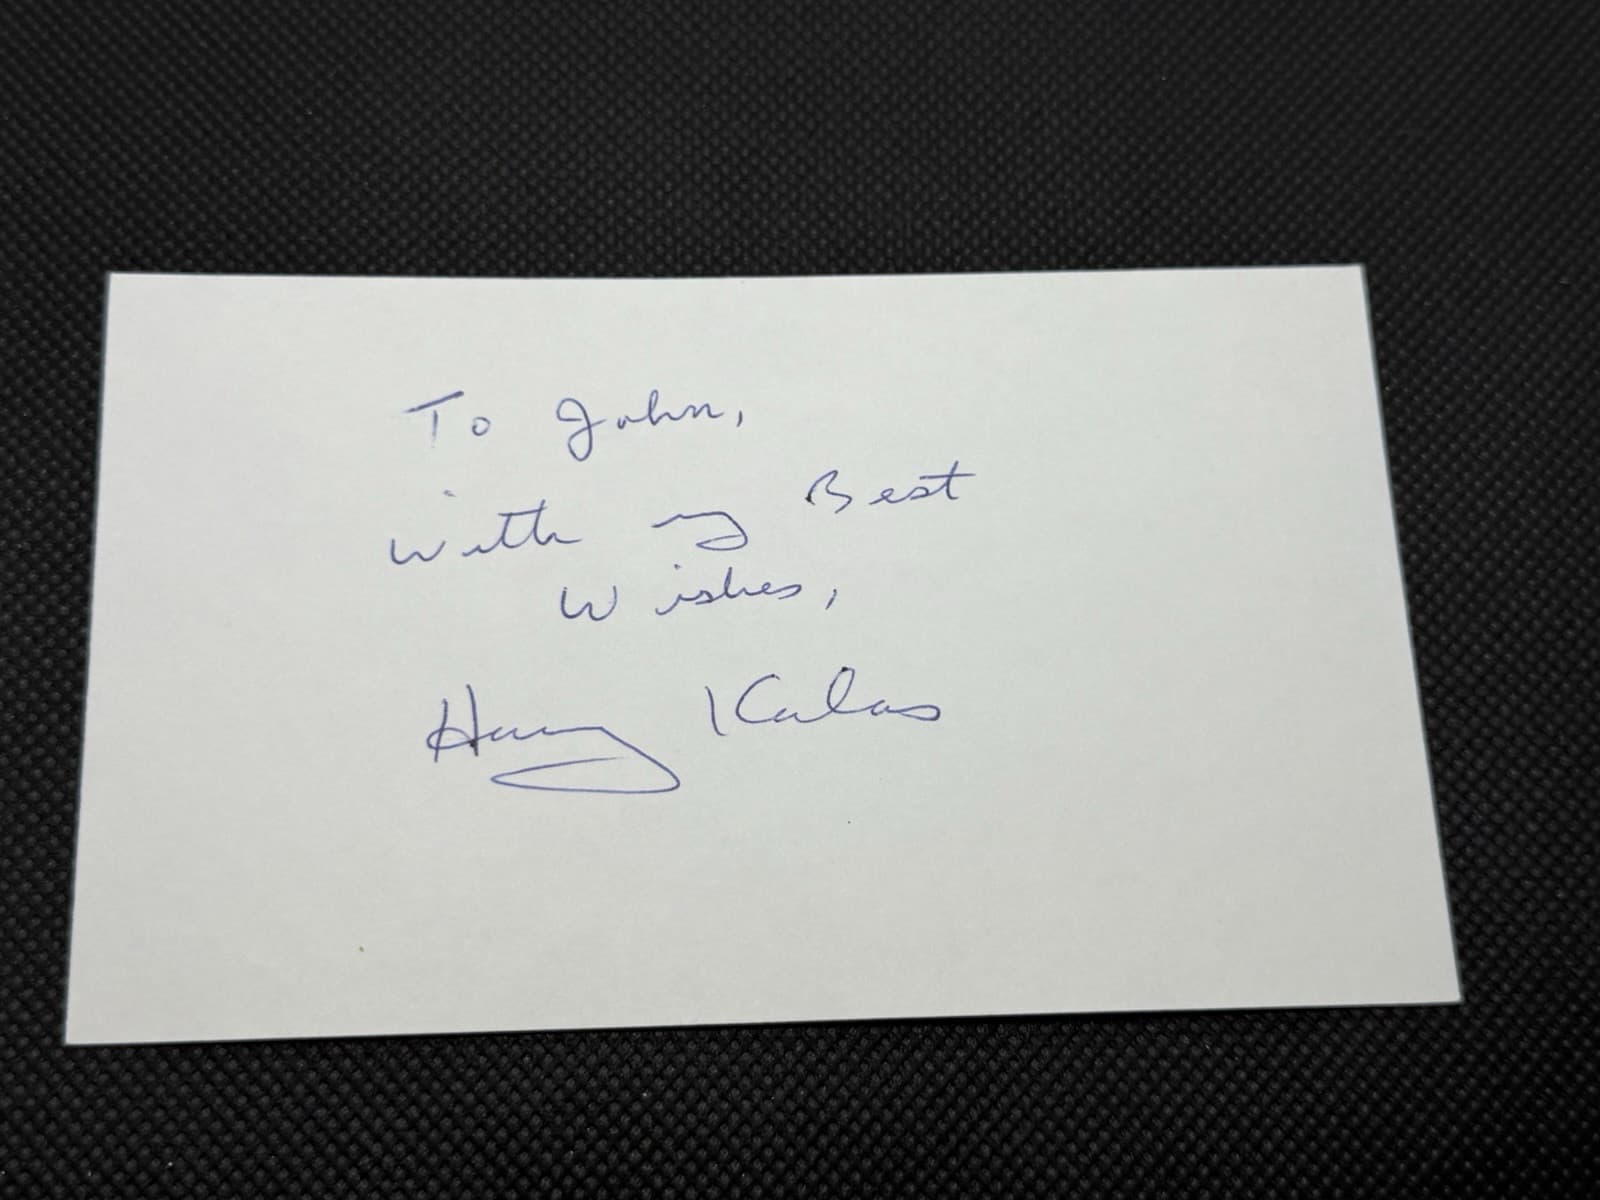 To John,
With my Best
Wishes,
Harry Kalas